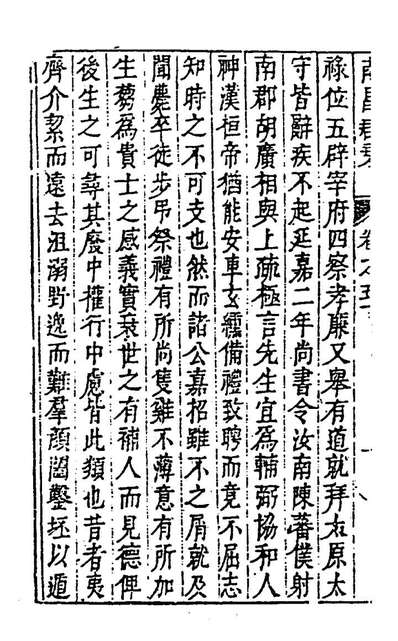 祿位五辟宰府四察孝廉又舉有道就拜太原太
守皆辭疾不起延嘉二年尚書令汝南陳蕃僕射
南郡胡廣相與上疏極言先生宜為輔弼協和人
神漢桓帝猶能安車玄纁備禮致聘而竟不屈志
知時之不可支也然而諸公嘉招雖不之屑就及
聞薨卒徒步弔祭禮有所尚隻雞不薄意有所加
生芻為貴士之感義實衰世之有補人而見德俾
後生之可尋其廢中權行中慮皆此類也昔者夷
齊介絜而遠去沮溺野逸而難羣顏闔鑿坯以遁